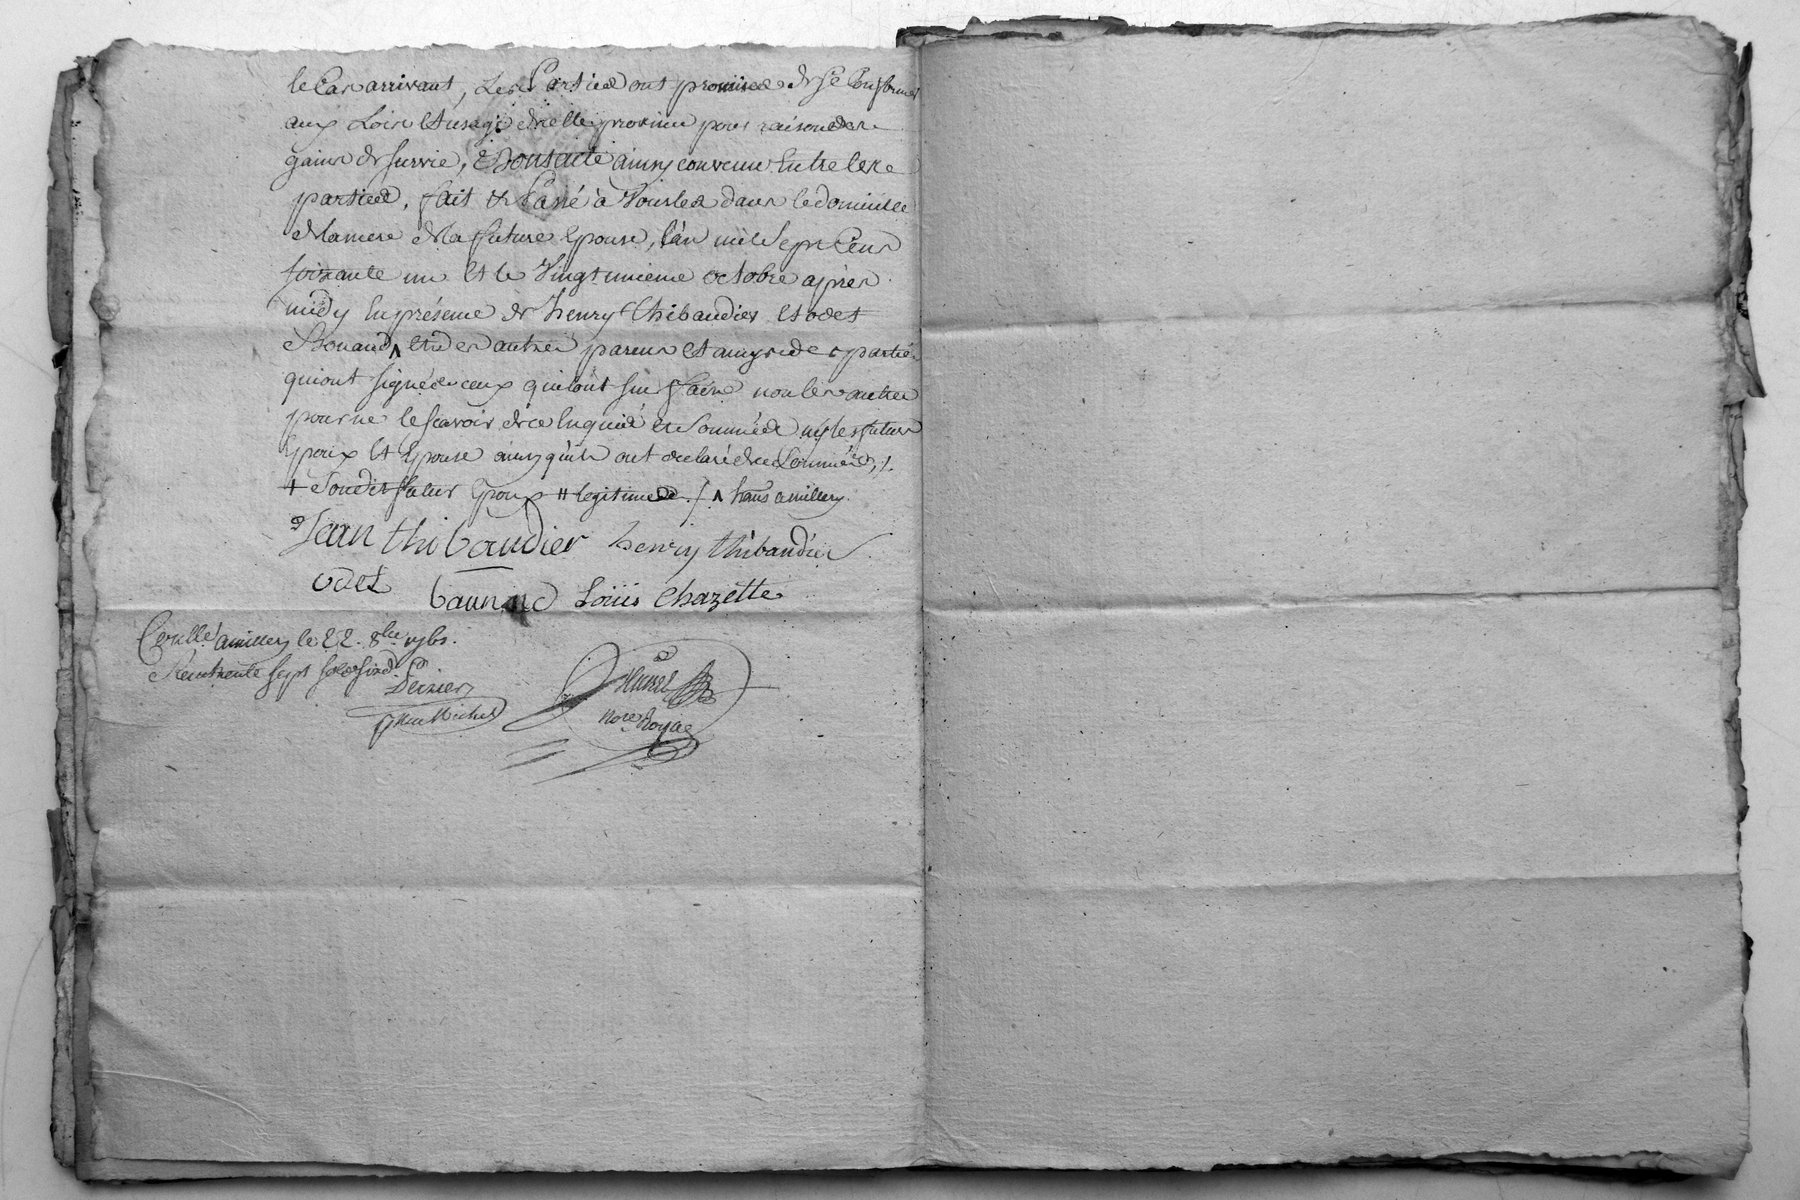 le Cas arrivant, Les Parties ont promises de se Conformer
aux Loix et usage de cette province pour raison des
gains de survie, ainsy convenu Entre les
parties, fait et Passé à Vourles dans le domicille
de la mere de la future Epouse, l'an mil Sept Cens
soixante un et le Vingt unieme octobre apres
midy En présence de henry thibaudier et odet
et des autres parens et amys des parties
qui ont signé de ceux qui l'ont sçu faire non les autres
pour ne le sçavoir de ce Enquis et Sommés ny les futurs
Epoux et Epouse ainsy qu'ils ont declaré de ce Sommés ./.
+ Sondit futur Epoux # legitimes ./. ^ hans a millery.
Jean thibaudier henry thibaudier
odet bounand Loüis Chazette
Conllé a millery le 22. 8bre 1761.
Reçu trente sept sols six d.
Perrier
Not.re Royal